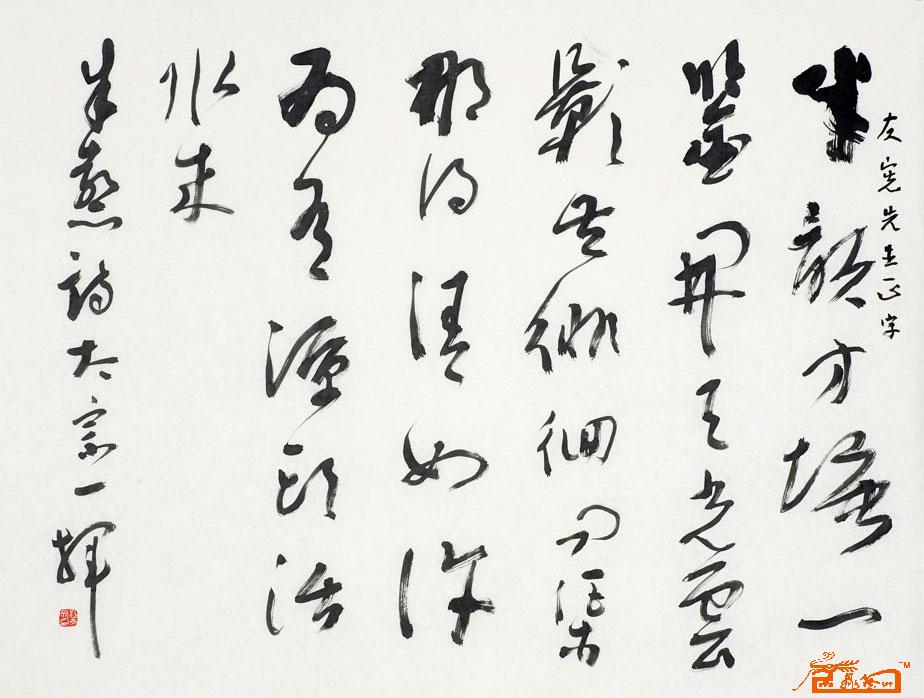 友宪先生正字
半畝方塘一
鑒開天光雲
影共徘徊問渠
那得清如許
為有源頭活
水來
朱熹詩 宗一